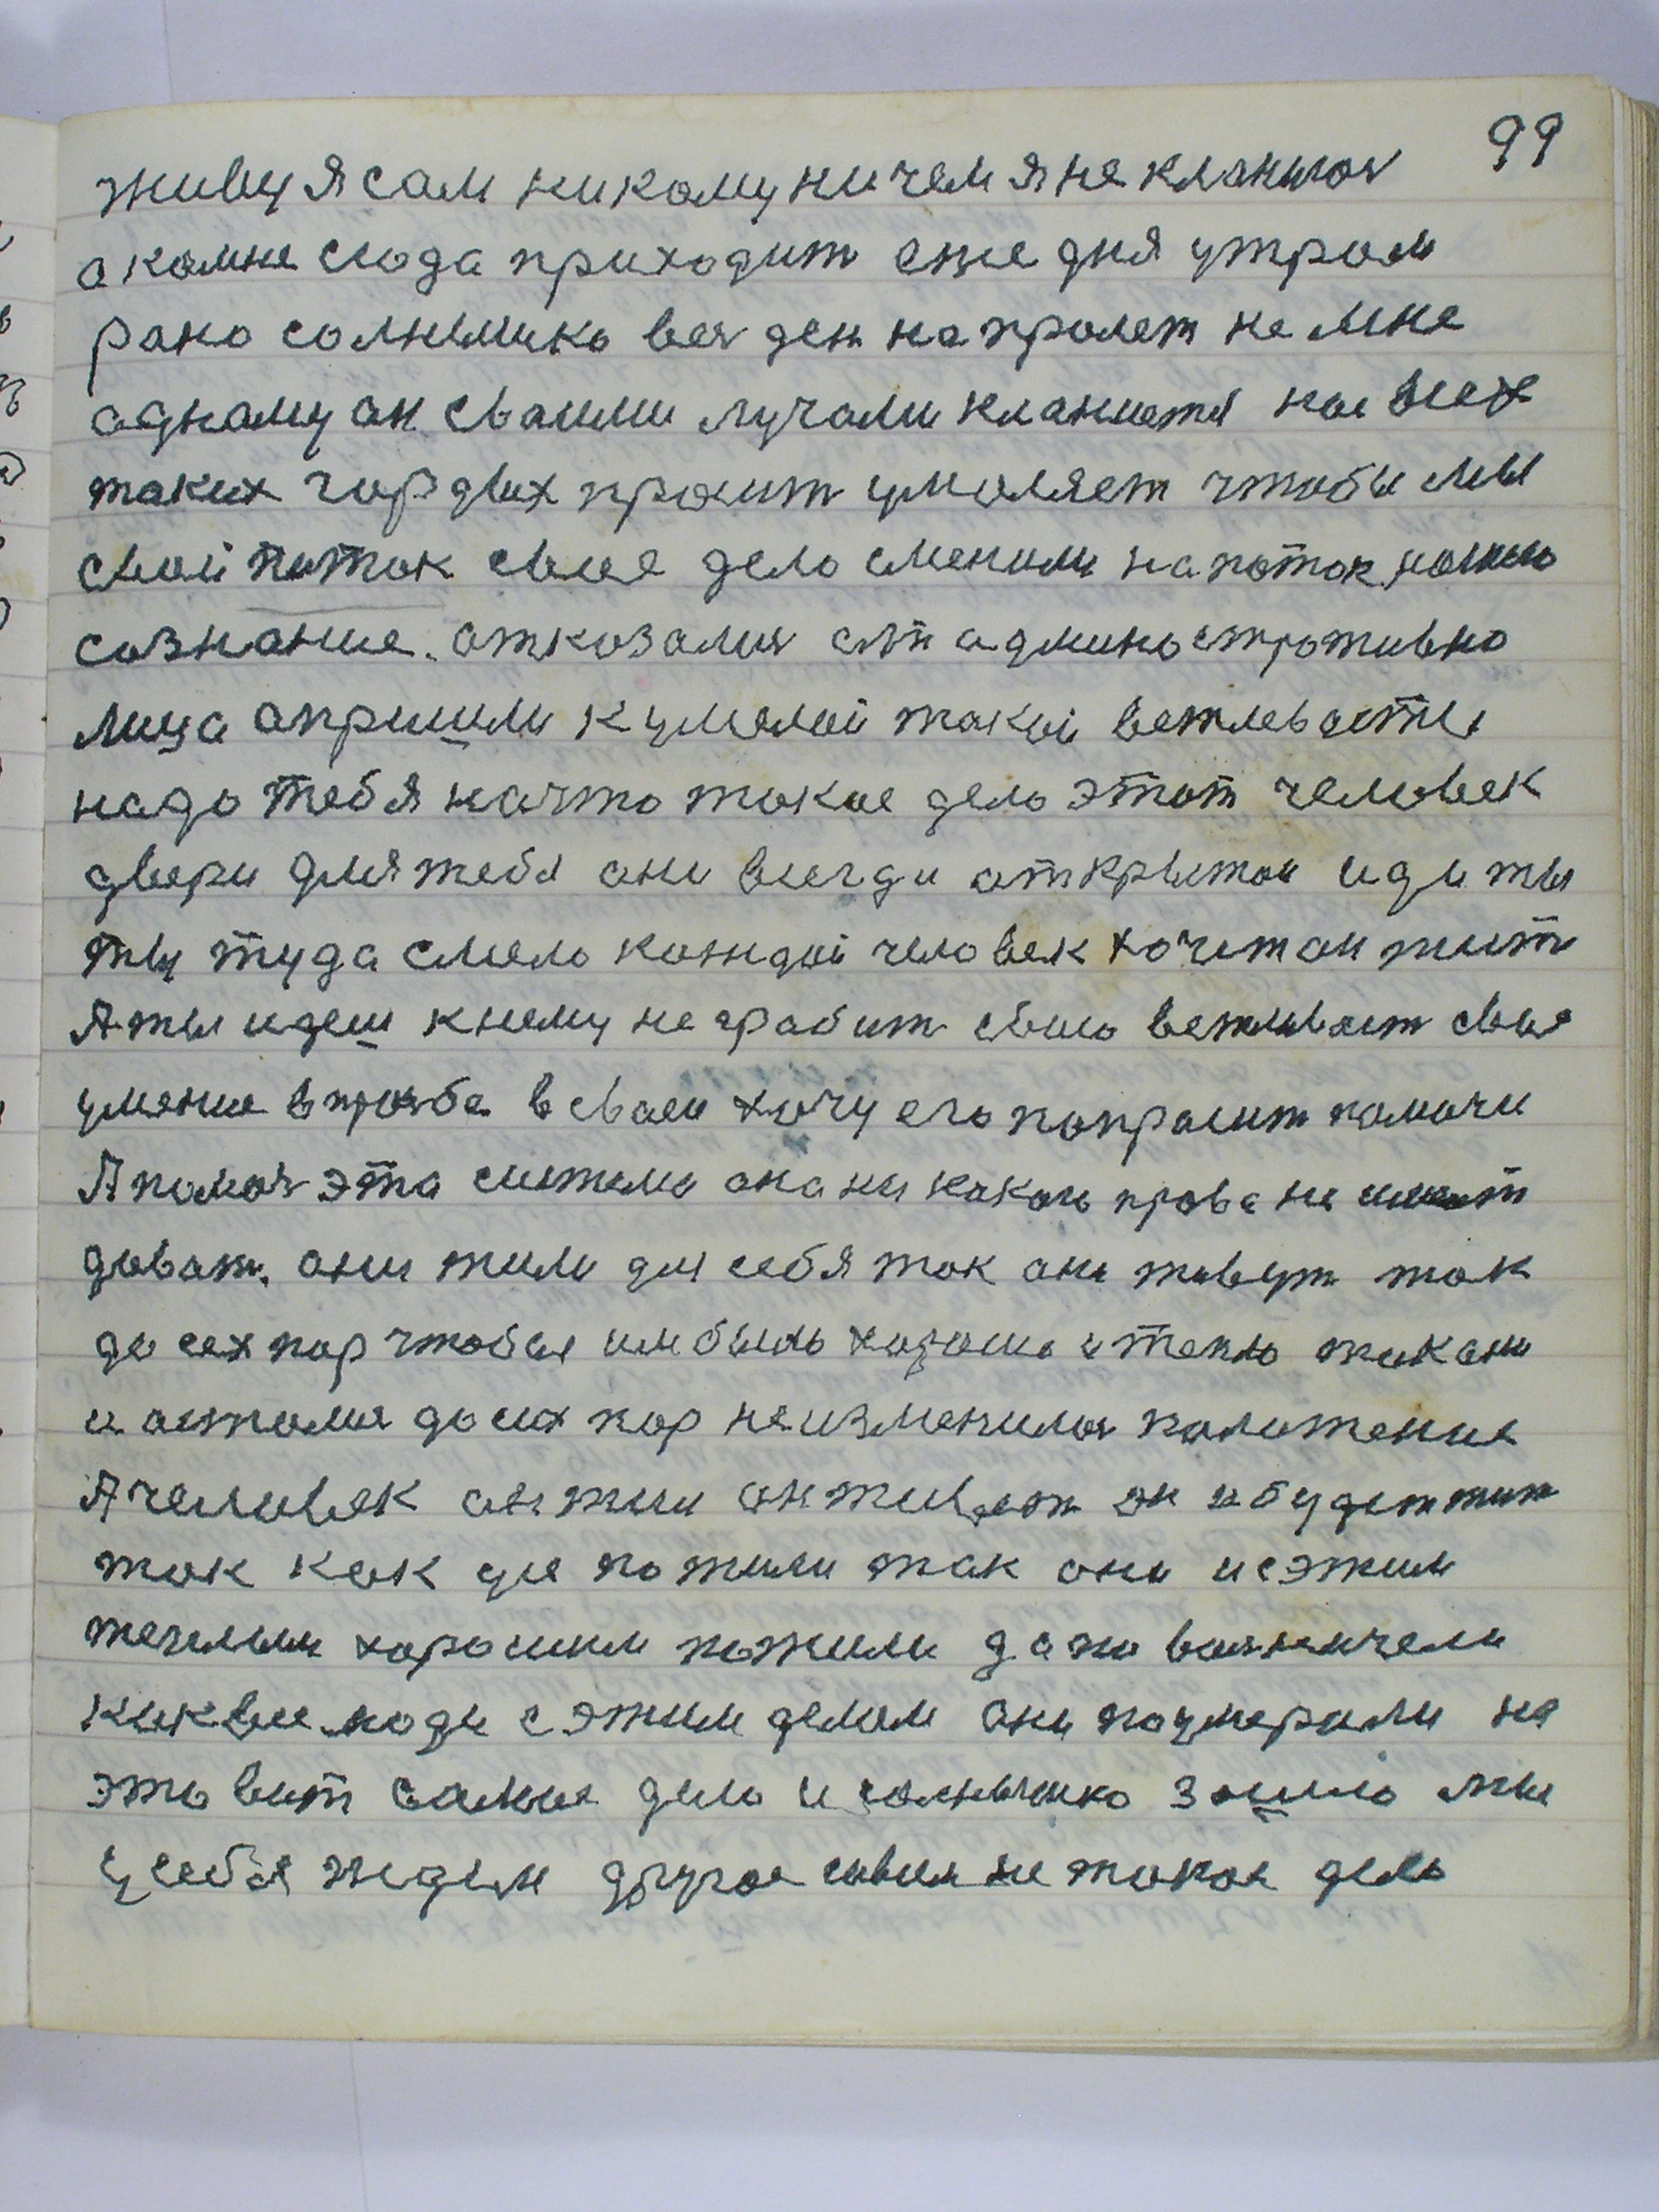 99
живу я сам никому ничем я не кланюся
а комне сюда приходит еже дня утром
рано солнышко вся ден напролет не мне
аднаму он сваими лучами кланиетя нас всех
таких гордых просит умоляет чтобы мы
свой поток свое дело сменили на поток
сазнание. отказалися администротивно
лица апришли к умелой такой вежлевасти
надо тебя начто такое дело этот человек
двери для тебя они всегди открытои иди ты
ту туда смело кождой человек хочит он жит
А ты идеш книму не грабит свою вежливаст свое
умение в прозбе в сваей хочу его попрасит помочи
А помоч эта система она ни каких права не имеет
дават. они жили для себя так они живут так
до сех пор чтобы им было харошо и тепло так они
и астолися до сих пор не изменилося положение
А человек он жил он живет он и будет жит
так как де по жили так они и сэтим
теплым хорошим пожили да по
как все люди с этим делом они поумерали на
это вот самое дело и солнышко зашло мы
у себя ждем другое савсем не такое дело